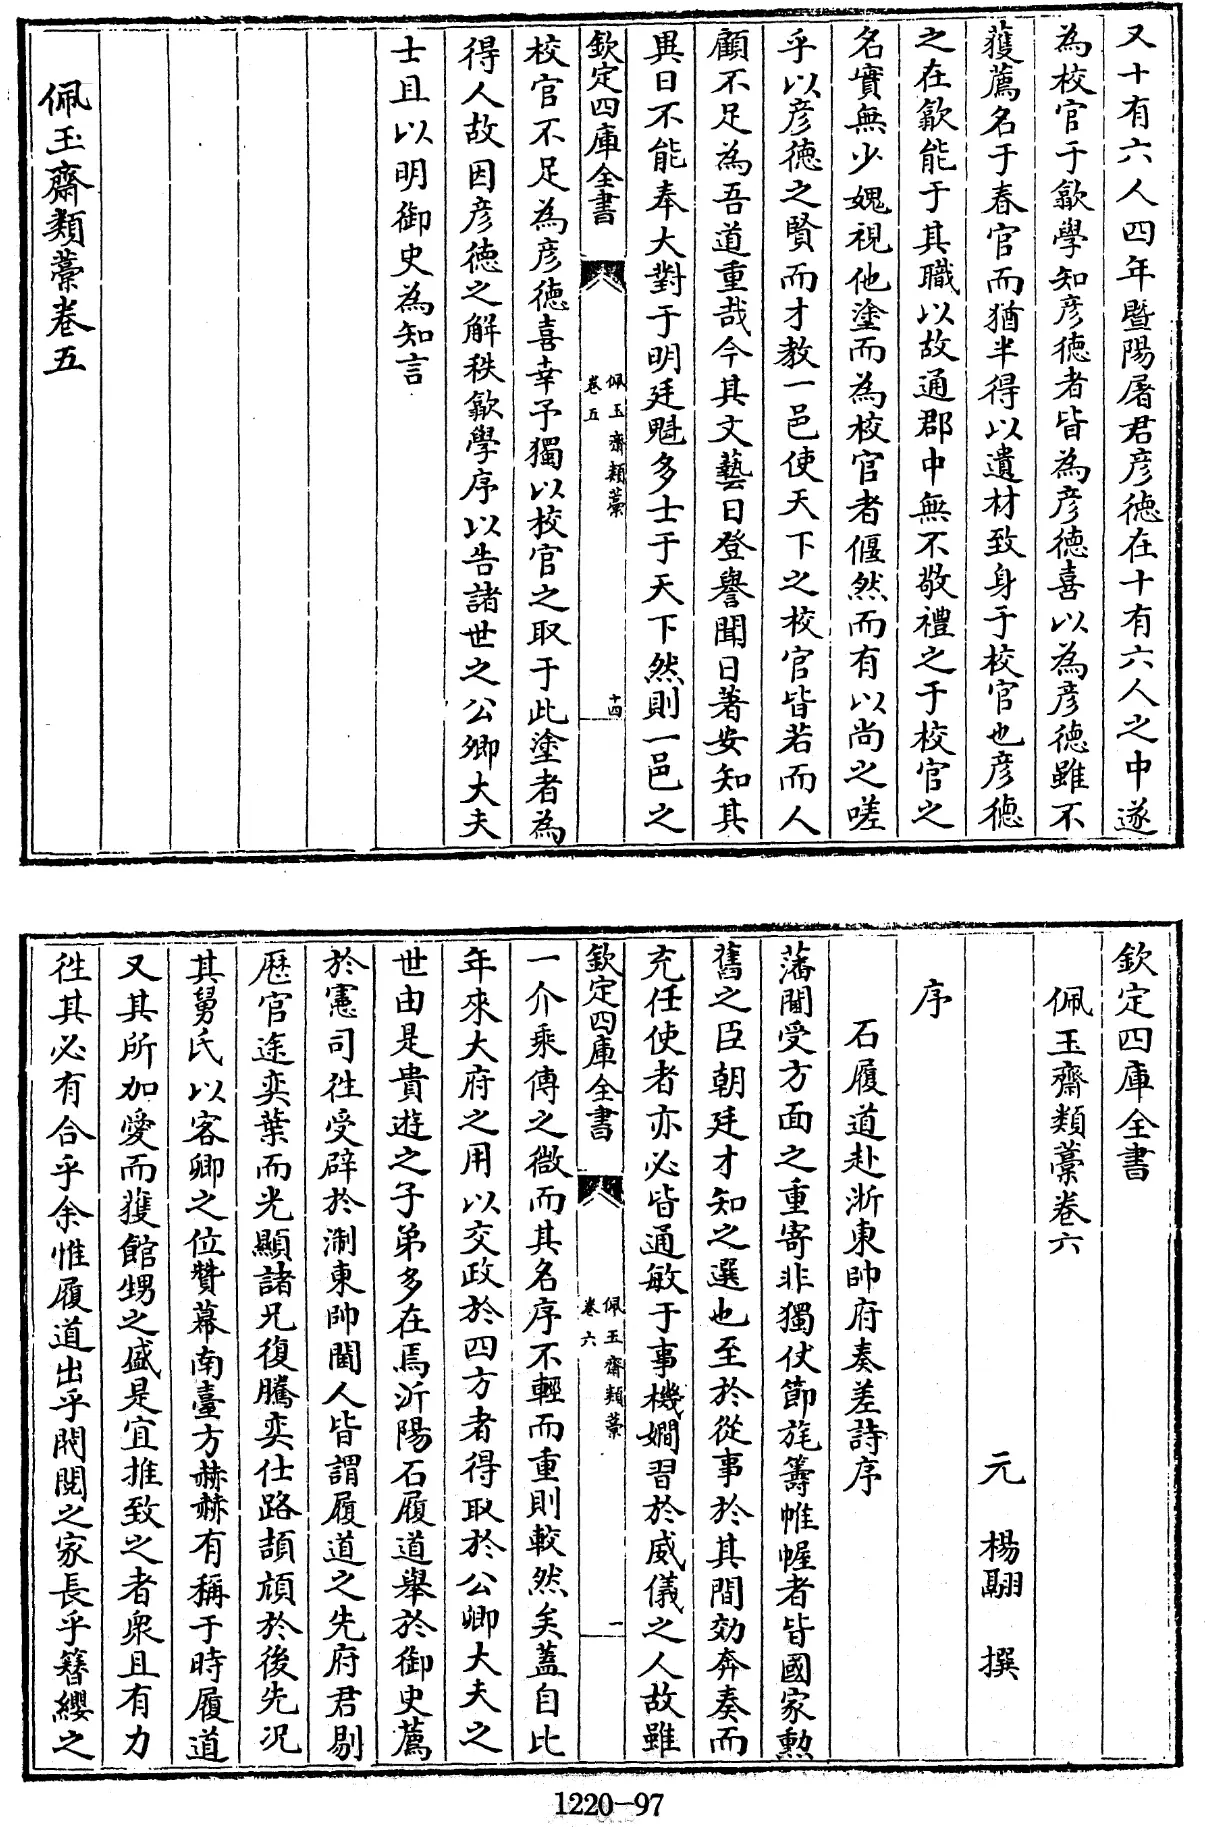 又十有六人四年暨陽屠君彦徳在十有六人之中遂
為校官于歙學知彦徳者皆為彦徳喜以為彦徳雖不
獲薦名于春官而猶半得以遺材致身于校官也彦徳
之在歙能于其職以故通郡中無不敬禮之于校官之
名實無少媿視他塗而為校官者偃然而有以尚之嗟
乎以彦徳之賢而才教一邑使天下之校官皆若而人
顧不足為吾道重哉今其文藝日登譽聞日著安知其
異日不能奉大對于明廷魁多士于天下然則一邑之
欽定四庫全書
佩玉齋類藁
卷五
十四
校官不足為彦徳喜幸予獨以校官之取于此塗者為
得人故因彦徳之解秩歙學序以告諸世之公卿大夫
士且以明御史為知言
佩玉齋類藁卷五
欽定四庫全書
佩玉齋類藁卷六
元 楊翮 撰
序
石履道赴浙東帥府奏差詩序
藩閫受方面之重寄非獨仗節旄籌帷幄者皆國家勲
舊之臣朝廷才知之選也至於從事於其間効奔奏而
充任使者亦必皆通敏于事機嫺習於威儀之人故雖
欽定四庫全書
佩玉齋類藁
卷六
一
一介乘傳之微而其名序不輕而重則較然矣蓋自比
年來大府之用以交政於四方者得取於公卿大夫之
世由是貴遊之子弟多在焉沂陽石履道舉於御史薦
於憲司徃受辟於淛東帥閫人皆謂履道之先府君剔
歴官途奕葉而光顯諸兄復騰奕仕路頡頏於後先况
其舅氏以客卿之位贊幕南臺方赫赫有稱于時履道
又其所加愛而獲館甥之盛是宜推致之者衆且有力
徃其必有合乎余惟履道出乎閥閱之家長乎簪纓之
1220-97